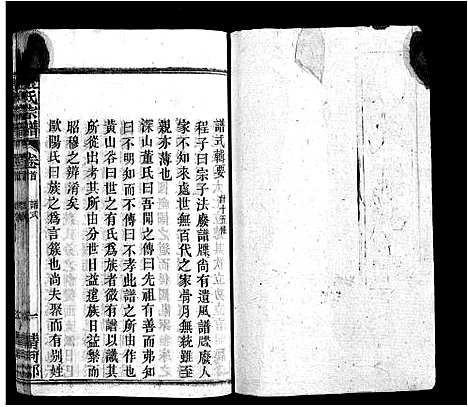 譜式輯要
程子曰宗子法廢譜牒尚有遺風譜牒廢人
家不知來處世無百代之家骨月無統雖至
親亦薄也
深山董氏曰吾聞之傳曰先祖有善而弗知
曰不明知而不傳曰不孝此譜之所由作也
黃山谷曰世之有氏為族者微有譜以識其
所從出者其所由分世旧益遠族旧益繁而
昭穆之辨淆矣
歐陽氏曰族之為言簇也尚夫聚而有別姓
氏宗譜
卷首
譜式
一